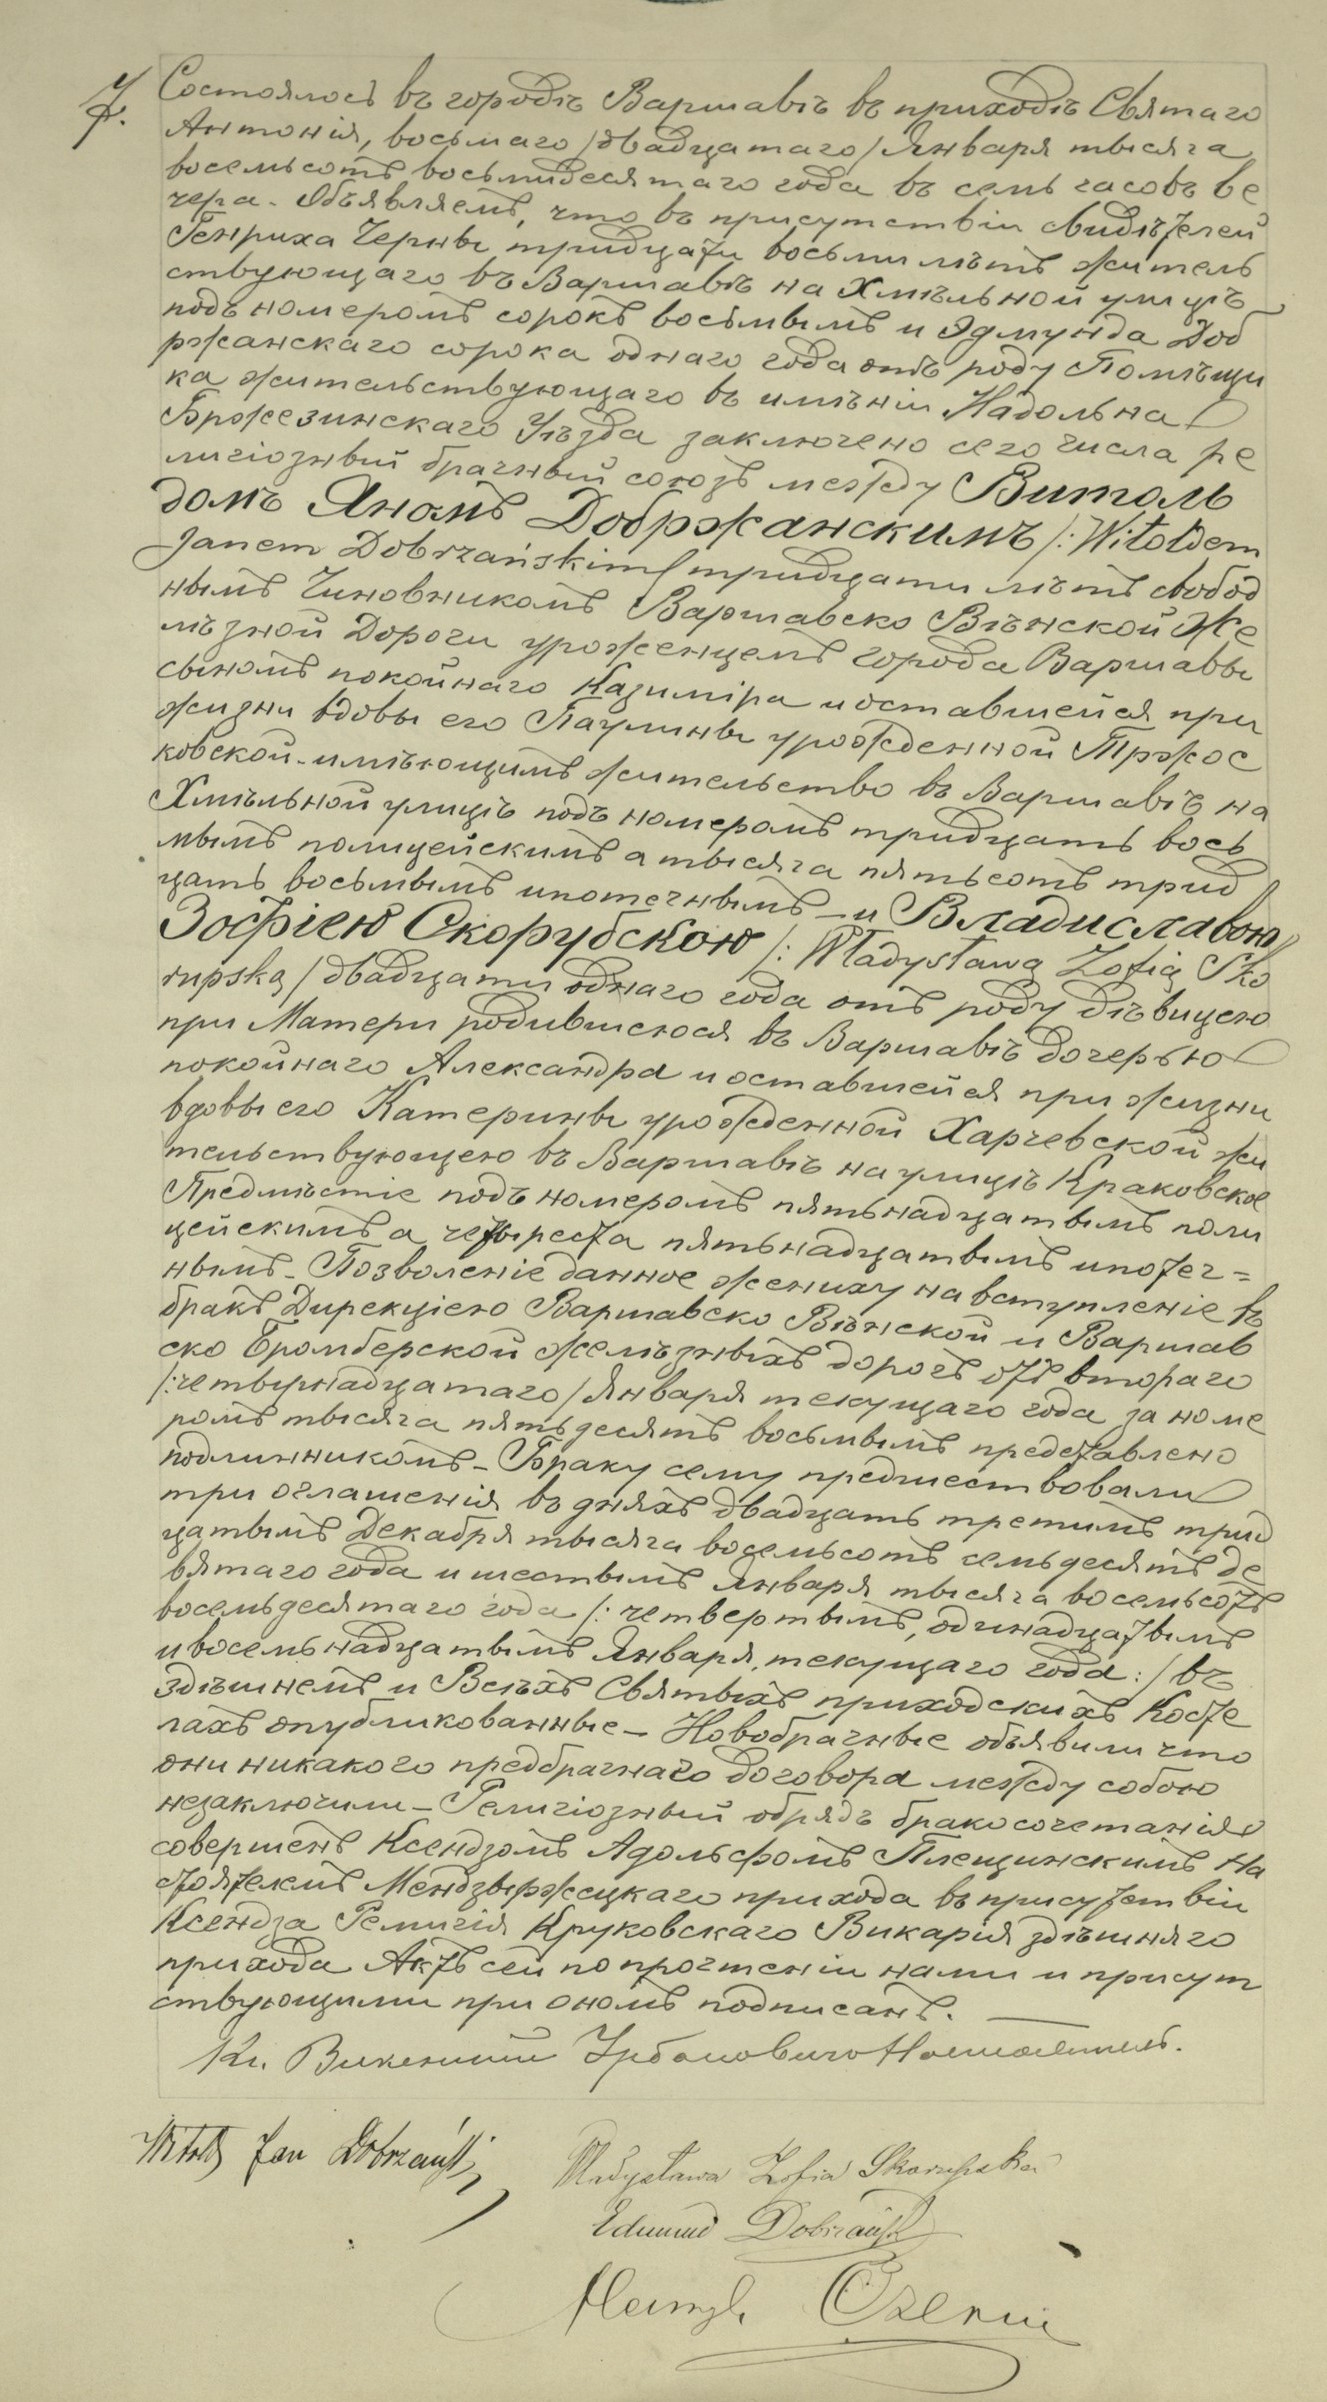 7.
Состоялось въ городѣ Варшавѣ въ приходѣ Святаго
Антонія, восьмаго /двадцатаго/ Января тысяча
восемьсотъ восьмидесятаго года въ семь часовъ ве
чера. Объявляемъ, что въ присутствіи свидѣтелей
Генриха Черны тридцати восьми лѣтъ житель
ствующаго въ Варшавѣ на Хмѣльной улицѣ
подъ номеромъ сорокъ восьмымъ и Эдмунда Доб
ржанскаго сорока однаго года отъ роду Помѣщи
ка жительствующаго въ имѣніи Надольна
Бржезинскаго Уѣзда заключено сего числа ре
лигіозный брачный союзъ между Витоль
домъ Яномъ Добржанскимъ /: Witoldem
Janem Dobrzańskim/ тридцати лѣтъ свобод
нымъ Чиновникомъ Варшавско Вѣнской Же
лѣзной Дороги уроженцемъ города Варшавы
сыномъ покойнаго Казиміра и оставшейся при
жизни вдовы его Паулины урожденной Тржос
ковской - имѣющимъ жительство въ Варшавѣ на
Хмѣльной улицѣ подъ номеромъ тридцать вось
мымъ полицейскимъ а тысяча пятьсотъ трид
цать восьмымъ ипотечнымъ - и Владиславою
Зофіею Скорубскою /: Władysławą Zofią Sko
rupską / двадцати однаго года отъ роду дѣвицею
при Матери родившеюся въ Варшавѣ дочерью
покойнаго Александра и оставшейся при жизни
вдовы его Катерины урожденной Харчевской жи
тельствующею въ Варшавѣ на улицѣ Краковское
Предмѣстіе подъ номеромъ пятьнадцатымъ поли
цейскимъ а четыреста пятьнадцатымъ ипотеч=
нымъ - Позволеніе данное жениху на вступленіе въ
бракъ Дирекціею Варшавско Вѣнской и Варшав
ско Бромберской желѣзныхъ дорогъ отъ втораго
/: четырнадцатаго / Января текущаго года за номе
ромъ тысяча пятьдесятъ восьмымъ представлено
подлинникомъ - Браку сему предшествовали
три оглашенія въ дняхъ двадцать третимъ трид
цатымъ Декабря тысяча восемьсотъ семьдесятъ де
вятаго года и шестымъ Января тысяча восемьсотъ
восемьдесятаго года /: четвертымъ, одинадцатымъ
и восемьнадцатымъ Января текущаго года :/ въ
здѣшнемъ и Всѣхъ Святыхъ приходскихъ Косте
лахъ опубликованные - Новобрачные объявили что
они никакого предбрачнаго договора между собою
незаключили - Религіозный обрядъ бракосочетанія
совершенъ Ксендзомъ Адольфомъ Плещинскимъ На
стоятелемъ Мендзыржецкаго прихода въ присутствіи
Ксендза Ремигія Круковскаго Викарія здѣшняго
прихода Актъ сей по прочтеніи нами и присут
ствующими при ономъ подписанъ.
Кс. Викентій Урбановичъ Настоятель.
Witold Jan Dobrzański
Władysława Zofia Skorupska
Edmund Dobrzański
Henryk Czerni